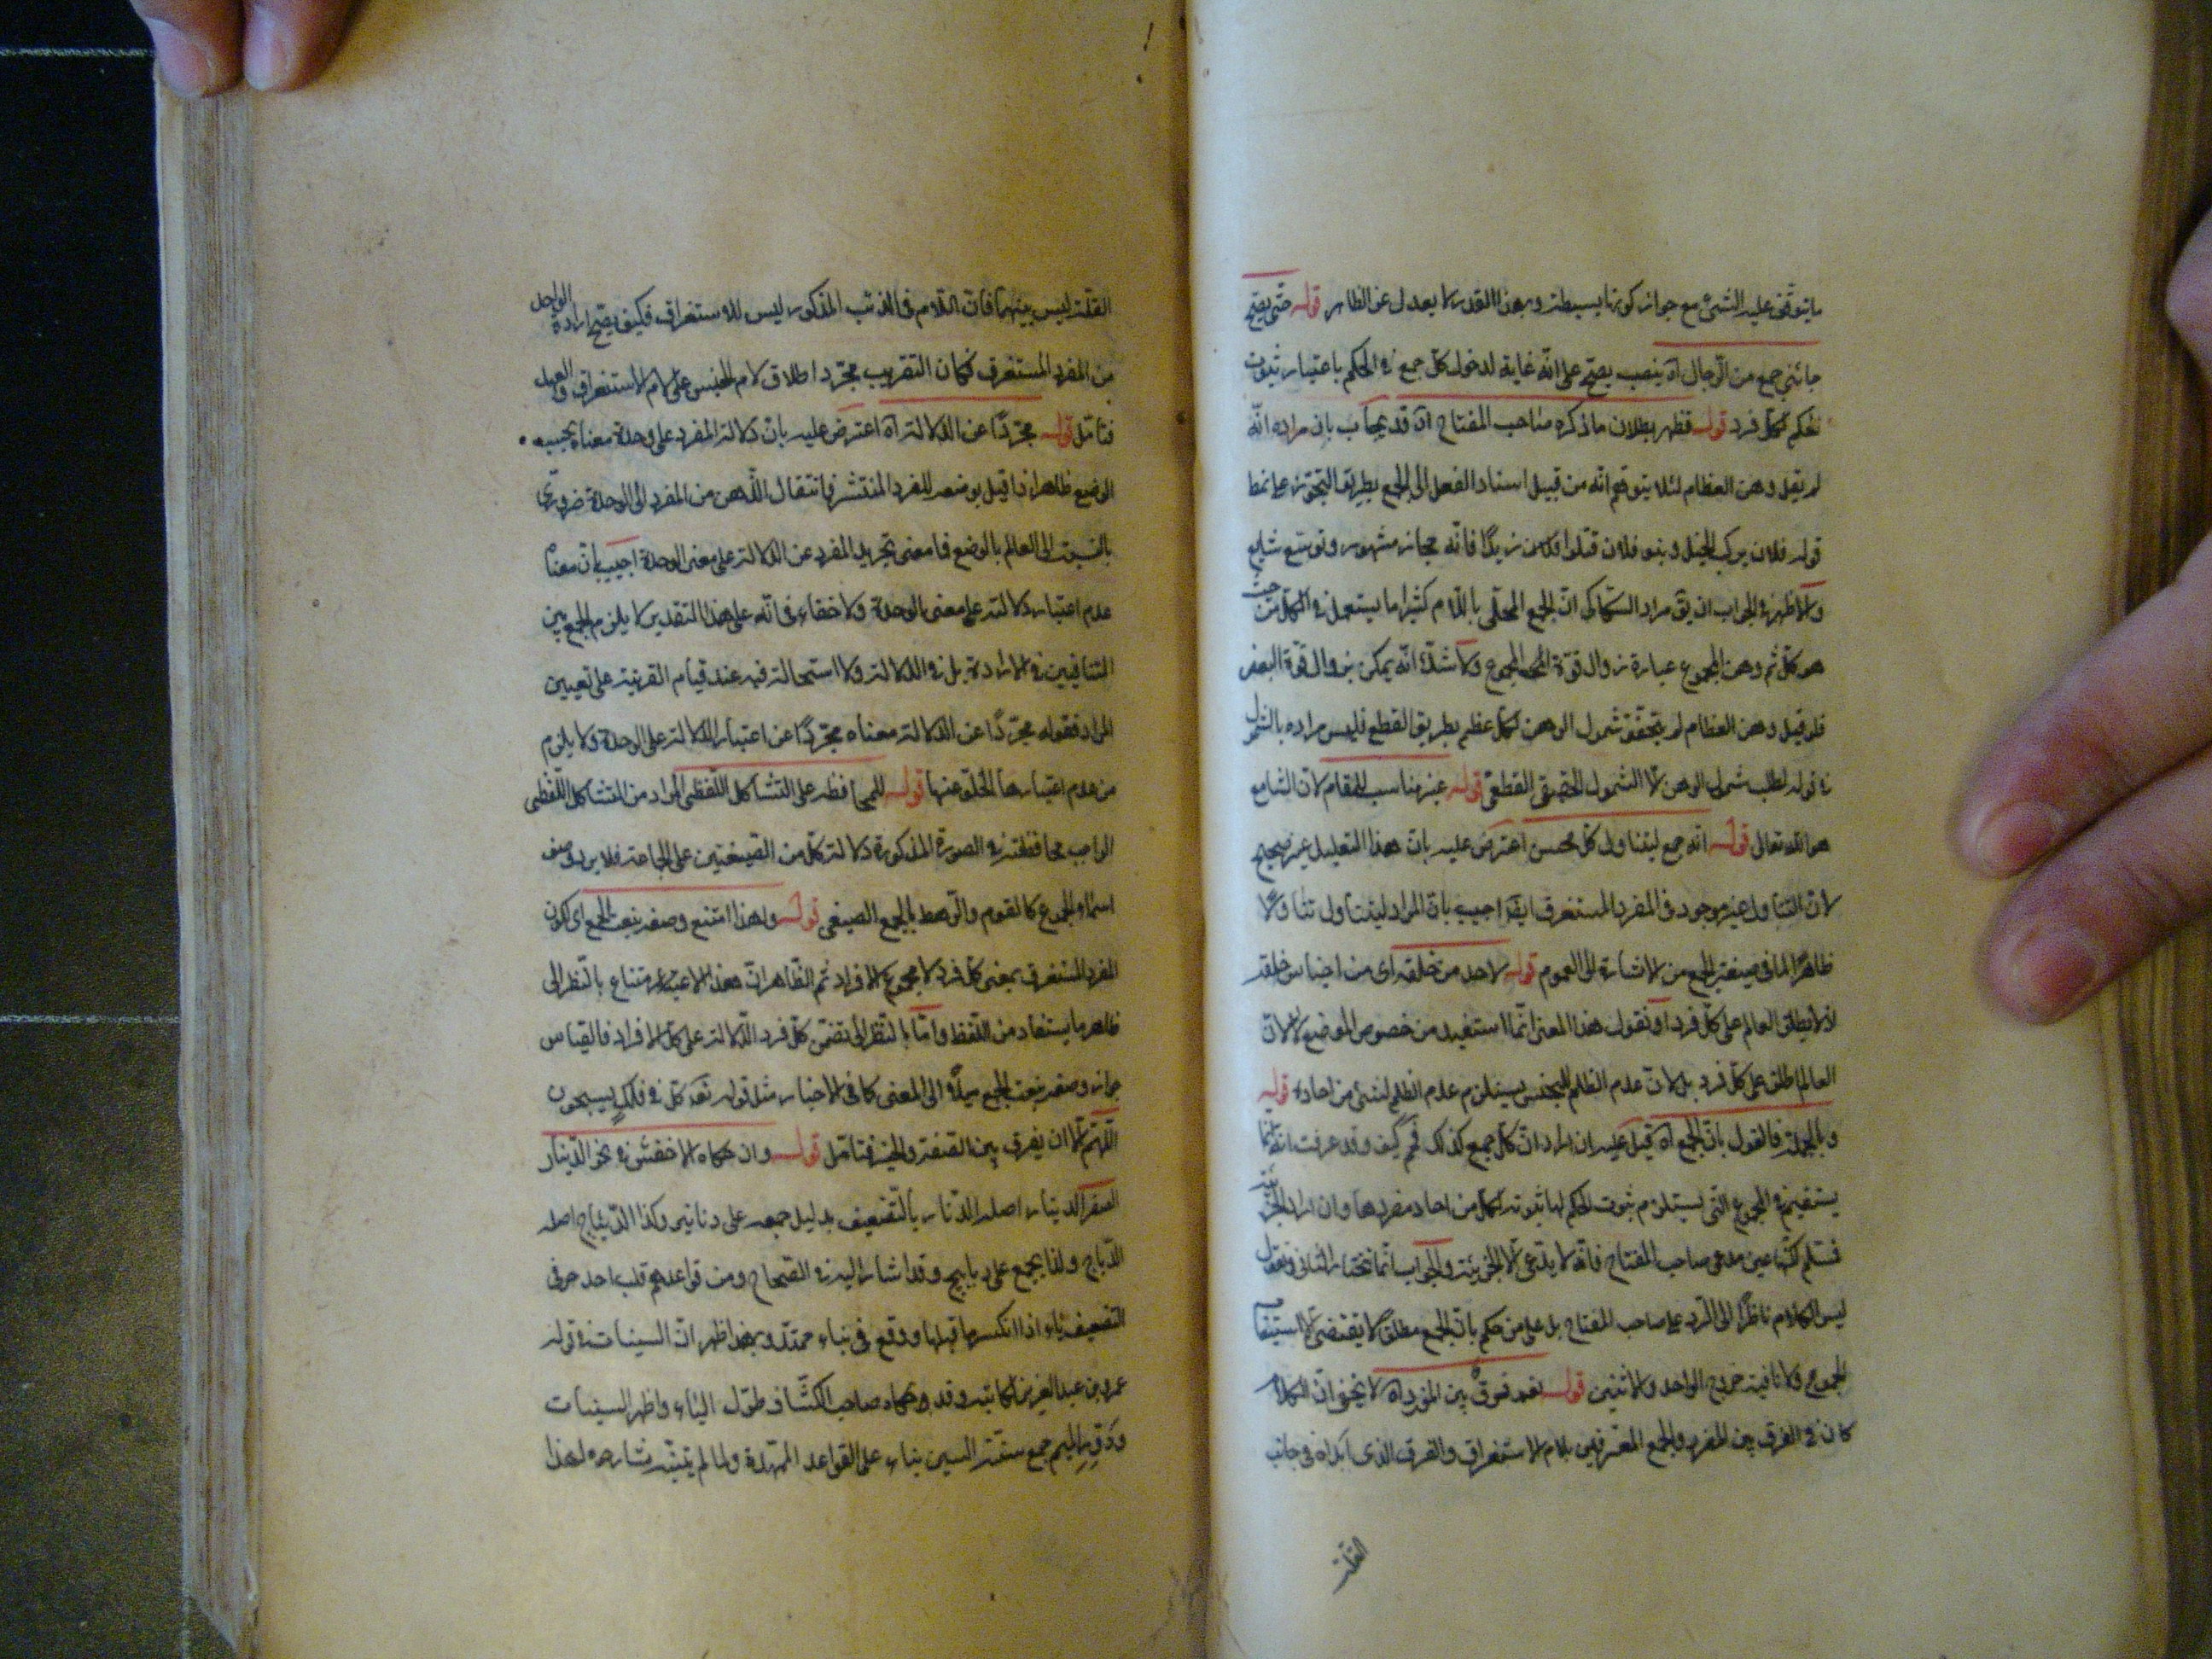 ما يتوقف عليه الشئ مع جواز كونها بسيطة وبهذا القدر لا يعدل عن الظاهر قوله حتى يصح
جائني جمع من الرجال آه ينصب يصح على انه غاية لدخول كل جمع في الحكم باعتبار ثبوت
الحكم لكل فرد قوله فظهر بطلان ما ذكره صاحب المفتاح آه قد يجاب بان مراده انه
لم يقل وهن العظام لئلا يتوهم انه من قبيل اسناد الفعل الى الجمع بطريق التجوز على نمط
قوله فلان يركب الخيل وبنو فلان قتلوا زيدا فانه مجاز مشهور وتوسع شايع
والاظهر في الجواب ان يق مراد السكاكى ان الجمع المحلى باللام كثيرا ما يستعمل في الكل من حيث
هو كل ثم وهن المجموع عبارة زوال قوة المجموع ولا شك انه يمكن بزوال قوة البعض
فلو قيل وهن العظام لم يتحقق شمول الوهن لكل عظم بطريق القطع فليس مراده بالشمول
في قوله لطلب شمول الوهن الا الشمول الحقيقى القطعى قوله غير مناسب للمقام لان السامع
هو الله تعالى قوله انه جمع ليتناول كل محسن اعترض عليه بان هذا التعليل غير صحيح
لان التناول غير موجود في المفرد المستغرق ايضا اجيب بان المراد ليتناول تناولا
ظاهرا لما في صيغة الجمع من الاشارة الى العموم قوله لاحد من خلقه اى من اجناس خلقه
لانه لا يطلق العالم على كل فرد او نقول هذا المعنى انما استفيد من خصوص الموضع لا لان
العالم اطلق على كل فرد بل لان عدم الظلم للجنس يستلزم عدم الظلم لشئ من احاده قوله
وبالجملة فالقول بان الجمع آه قيل عليه ان اراد ان كل جمع كذلك فمم كيف وقد عرفت انه انما
يستقيم في الجموع التى يستلزم ثبوت الحكم لها ثبوته لكل من احاد مفردها وان اراد الجزئية
فمسلم لكنها عين مدعى صاحب المفتاح فانه لا يدعى الا الجزئية والجواب انما نختار الثانى ونقول
ليس الكلام ناظرا الى الرد على صاحب المفتاح بل على من حكم بان الجمع مطلقا لا يقتضى الا استيفاء
المجموع ولا ينافيه خروج الواحد والاثنين قوله نعم فرق بين المفرد آه لا يخفى ان الكلام
كان في الفرق بين المفرد والجمع المعرفين بلام الاستغراق والفرق الذى ابداه في جانب
القلة
القلة ليس بينهما فان اللام في الذئب المذكور ليس للاستغراق فكيف يصح ارادة الواحد
من المفرد المستغرق فكان التقريب مجرد اطلاق لام الجنس على لام الاستغراق والعهد
فتامل قوله مجردا عن الدلالة آه اعترض عليه بان دلالة المفرد على وحدة معناه بحسب
الوضع ظاهر اذا قيل بوضعه للفرد المنتشر فانتقال الذهن من المفرد الى الوحدة ضرورى
بالنسبة الى العالم بالوضع فما معنى تجريد المفرد عن الدلالة على معنى الوحدة اجيب بان معناه
عدم اعتبار دلالته على معنى الوحدة ولا خفاء في انه على هذا التقدير لا يلزم الجمع بين
المتنافيين في الارادة بل في الدلالة ولا استحالة فيه عند قيام القرينة على تعيين
المراد فقوله مجردا عن الدلالة معناه مجردا عن اعتبار الدلالة على الوحدة ولا يلزم
من عدم اعتبارها الخلو عنها قوله للمحافظة على التشاكل اللفظى المراد من التشاكل اللفظى
الواجب محافظته في الصورة المذكورة دلالة كل من الصيغتين على الجماعة فلا يرد وصف
اسماء الجموع كالقوم والرهط بالجمع الصيغى قوله ولهذا امتنع وصفه بنعت الجمع اى لكون
المفرد المستغرق بمعنى كل فرد لا مجموع الافراد ثم الظاهر ان هذا الامتناع بالنظر الى
ظاهر ما يستفاد من اللفظ واما بالنظر الى تضمن كل فرد الدلالة على كل الافراد فالقياس
جواز وصفه بنعت الجمع ميلا الى المعنى كما في الاخبار مثل قوله تعه كل في فلك يسبحون
اللهم الا ان يفرق بين الصفة والخبر فتامل قوله وان حكاه الاخفش في نحو الدينار
الصفر الدينار اصله الدنار بالتضعيف بدليل جمعه على دنانير وكذا الديباج اصله
الدباج ولذا يجمع على دبابيج وقد اشار اليه في الصحاح ومن قواعدهم قلب احد حرفى
التضعيف ياء اذا انكسر ما قبلها ووقع في بناء ممتد وبهذا ظهر ان السينات في قوله
عمرو بن عبد العزيز لكاتبه وقد حكاه صاحب الكشاف طول الياء واظهر السينات
ودور الميم جمع سنة السين بناء على القواعد الممهدة ولما لم يتنبه شارحه لهذا